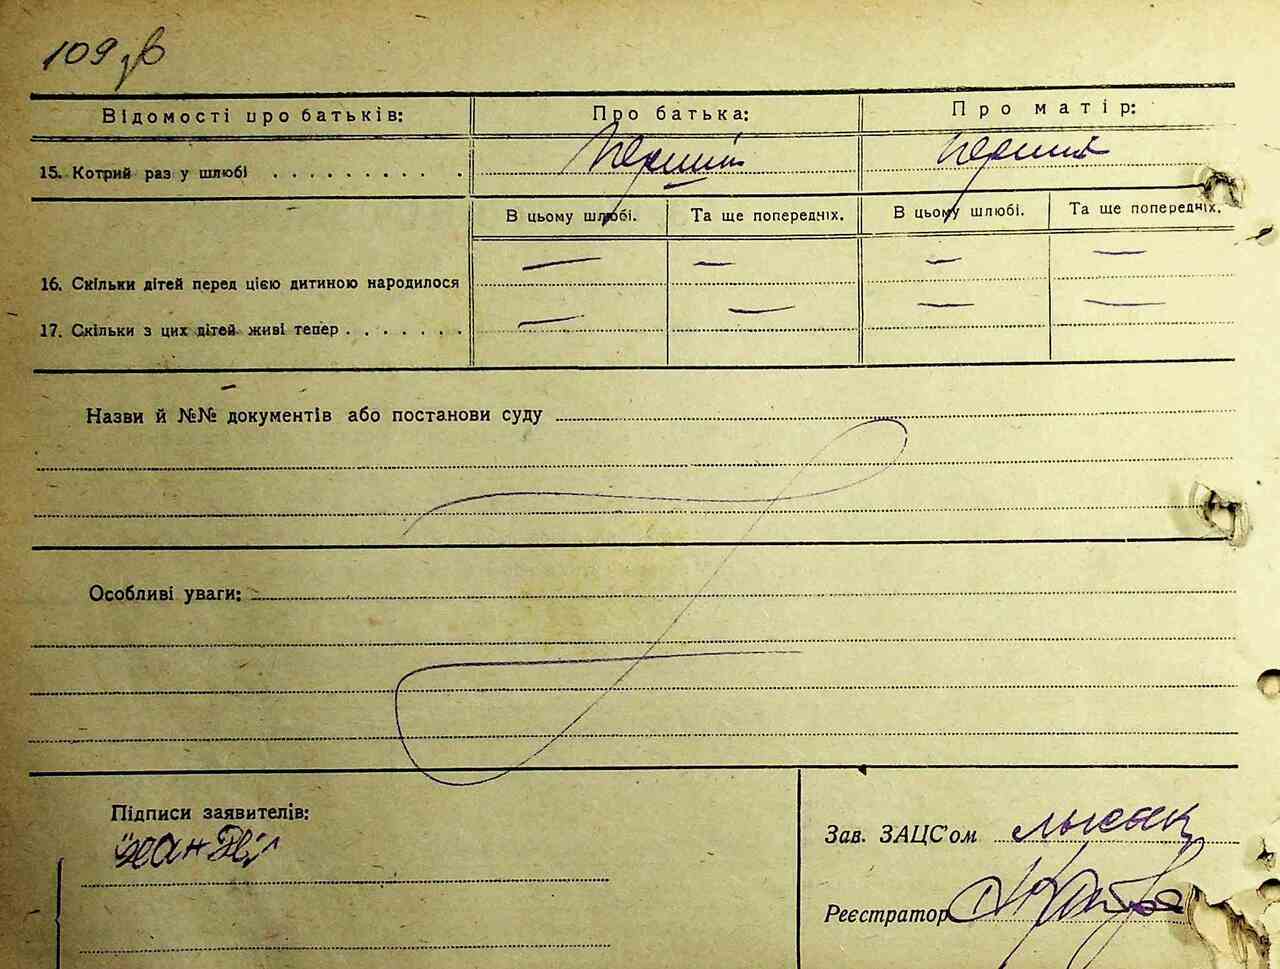 109 зв
Відомості про батьків: Про батька: Про матір:
15. Котрий раз у шлюбі . . . . . . . . . . Перший Перший
В цьому шлюбі. Та ще попередніх. В цьому шлюбі. Та ще попередніх.
16. Скільки дітей перед цією дитиною народилося — — — —
17. Скільки з цих дітей живі тепер . . . . . . . — — — —
Назви й №№ документів або постанови суду
Особливі уваги:
Підписи заявителів:
Зав. ЗАЦС'ом
Реєстратор